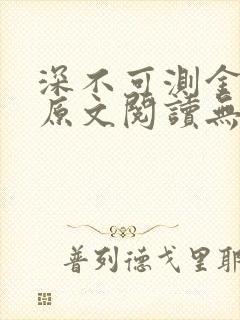 深不可測金
原文閱讀無
普列德戈里耶